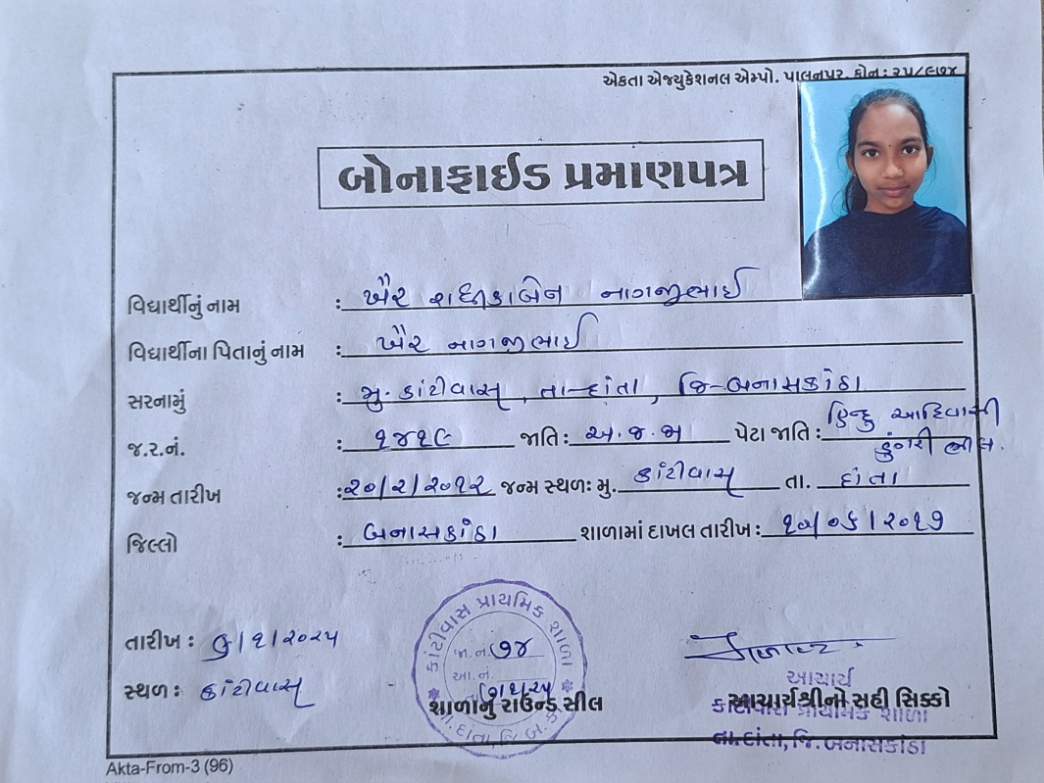 એકતા એજ્યુકેશનલ એમ્પો. પાલનપુર. ફોન : ૨૫૮૯૭૪
બોનાફાઈડ પ્રમાણપત્ર
વિદ્યાર્થીનું નામ : ખૈર રાધીકાબેન નાગજીભાઈ
વિદ્યાર્થીના પિતાનું નામ : ખૈર નાગજીભાઈ
સરનામું : મુ. કાંટીવાસ, તા-દાંતા, જિ-બનાસકાંઠા
જ.ર.નં. : ૧૪૧૯ જાતિ : અ.જ.જા પેટા જાતિ : હિન્દુ આદિવાસી
ડુંગરી ભીલ.
જન્મ તારીખ : ૨૦/૨/૨૦૧૨ જન્મ સ્થળઃ મુ. કાંટીવાસ તા. દાંતા
જિલ્લો : બનાસકાંઠા શાળામાં દાખલ તારીખ : /૨૦૧૭
તારીખ : /૧/૨૦૨૫
સ્થળ : કાંટીવાસ
કાંટીવાસ પ્રાથમિક શાળા
જા.નં. ૭૪
આ.નં.
તા. દાંતા, જિ. બ.કાં.
શાળાનું રાઉન્ડ સીલ
આચાર્ય
આચાર્યશ્રીનો સહી સિક્કો
કાંટીવાસ પ્રાથમિક શાળા
તા.દાંતા, જિ.બનાસકાંઠા
Akta-From-3 (96)